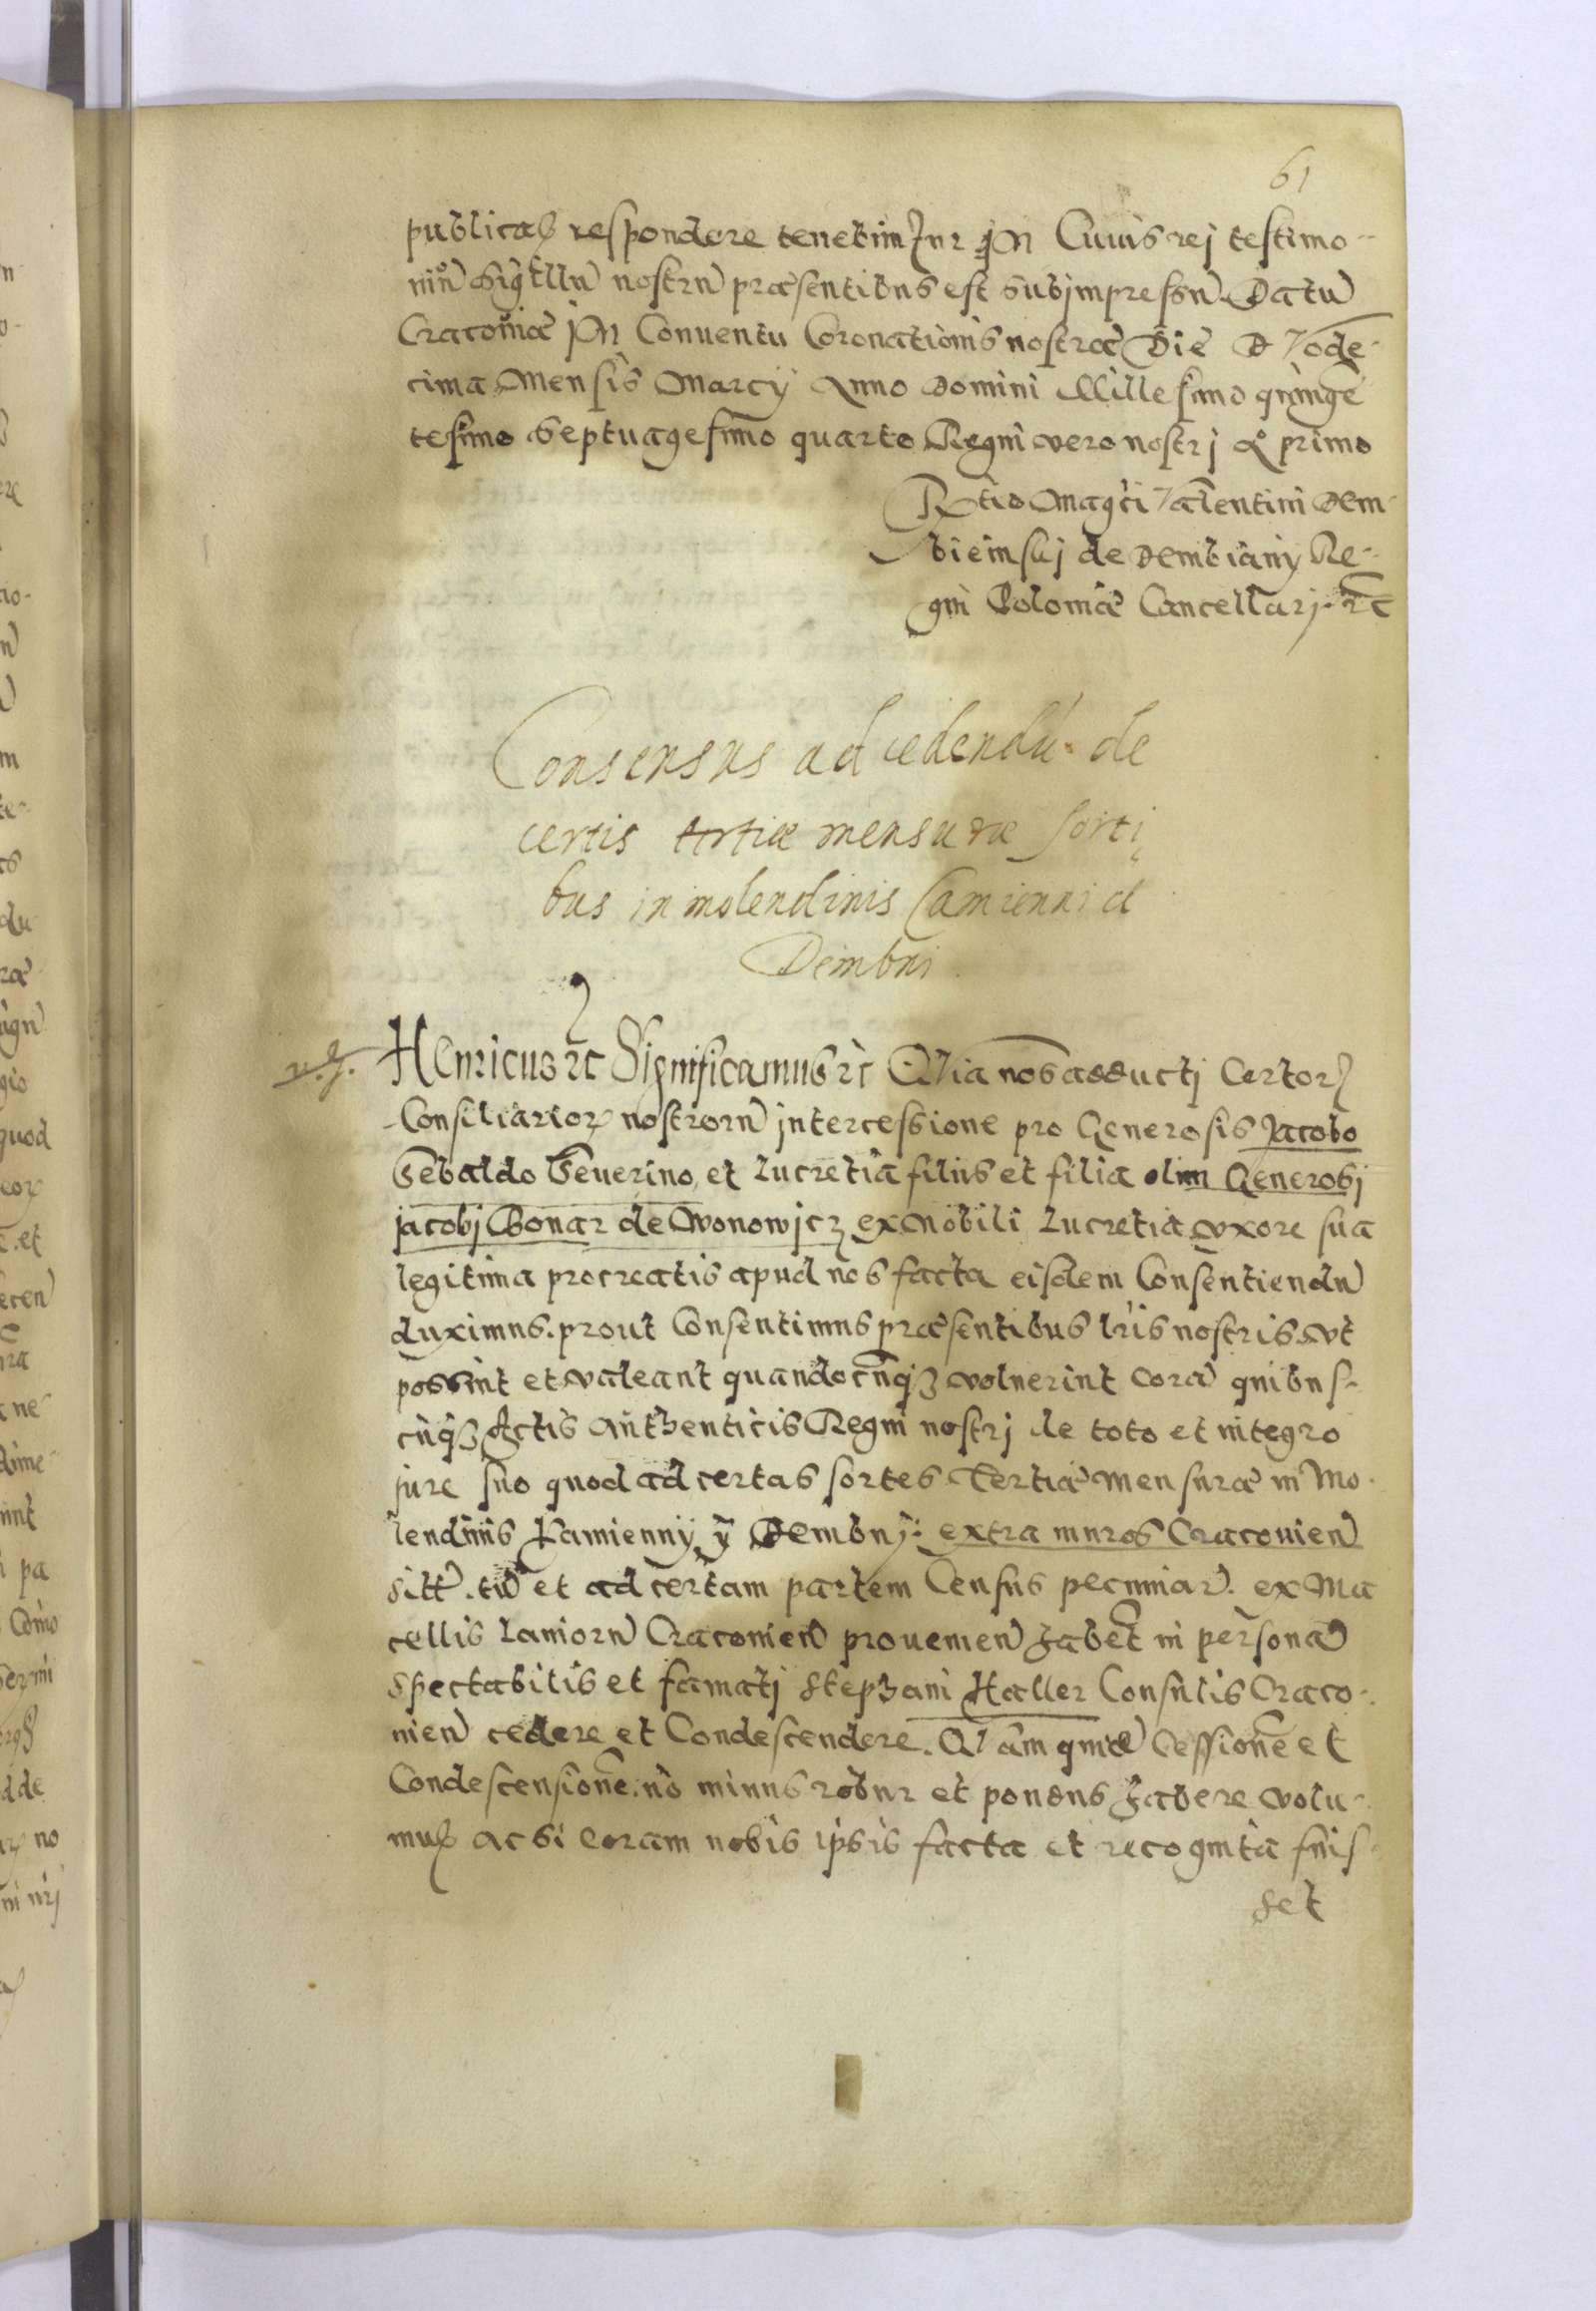 61
publicas respondere tenebuntur In Cuius rej testimo-
niu Sigillu nostru præsentibus est subjmpressu. Datu
Cracouiæ In Conuentu Coronationis nostræ Die Duode-
cima Mensis Marcij Anno Domini Millesimo quinge
tesimo Septuagesimo quarto Regni vero nostrj Aº primo
Rtio Magci Valentini Dem-
bienskj de Dembiany Re-
gni Poloniæ Cancellarj. &c
Consensus ad cedendu de
certis tertiæ mensuræ sorti
bus in molendinis Camienni et
Dembni
Henricus &c Significamus &c Quia nos adductj Certor
Consiliarior nostroru jntercessione pro Generosis Jacobo
Sebaldo Seuerino, et Lucretia filiis et filia olim Generosj
jacobj Bonar de Wonowjcz ex Nobili Lucretia vxore sua
legitima procreatis apud nos facta eisdem Consentiendu
duximus. prout Consentimus præsentibus lris nostris. vt
possint et valeant quandocunq3 voluerint cora quibus-
cuq3 Actis Authenticis Regni nostrj de toto et integro
jure suo quod ad certas sortes Tertiæ Mensuræ in Mo-
lendinis Kamienny y Dembny: extra muros Cracouien
sitt. tu et ad certam partem Census pecuniar. ex Ma
cellis Lanioru Cracouien prouenien habent in persona
Spectabilis et famatj Stephani Haller Consulis Craco-
uien cedere et Condescendere. Quam quide Cessione et
Condescensione. no minus robur et pondus habere volu-
mus ac si coram nobis ipsis facta et recognita fuis-
set